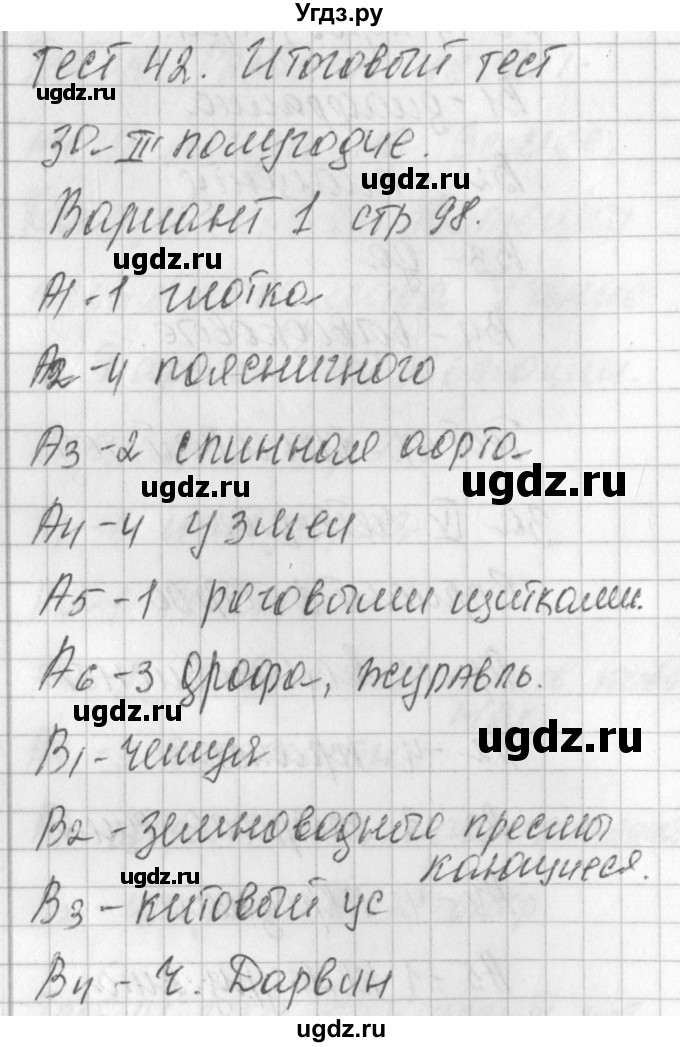 Угдз.ру
Тест 42. Итоговый тест
ugdz.ru
за III полугодие.
ugdz.ru
Вариант 1 стр 98.
ugdz.ru
А1-1 глотка
А2-4 поясничного
А3-2 спинная аорта
ugdz.ru ugdz.ru
А4-4 у змеи
А5-1 роговыми щитками.
А6-3 дрофа, журавль.
ugdz.ru ugdz.ru
В1-чешуя
В2-земноводные пресмы
кающиеся.
ugdz.ru
В3-китовый ус
В4-Ч. Дарвин
ugdz.ru